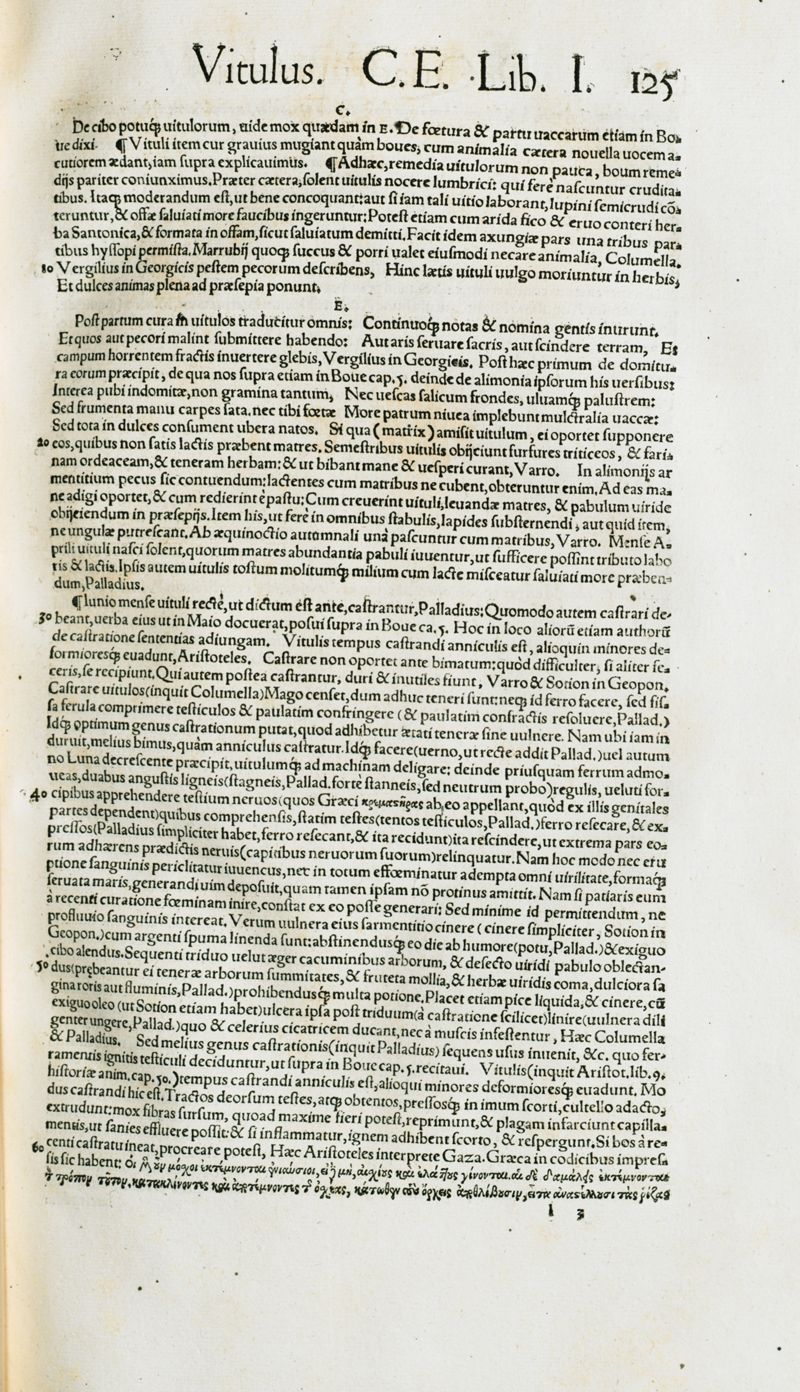 Vitulus. C. E. Lib. I. 125
C.
De cibo potuq́ uitulorum, uide mox quædam in E. De fœtura & partu uaccarum etiam in Bo-
ue dixi. ¶ Vituli item cur grauius mugiant quàm boues, cum animalia cætera nouella uocem a-
cutiorem ædant, iam supra explicauimus. ¶ Adhæc, remedia uitulorum non pauca, boum reme-
dijs pariter coniunximus. Præter cætera, solent uitulis nocere lumbrici: qui ferè nascuntur crudita-
tibus. Itaq́ moderandum est, ut bene concoquant: aut si iam tali uitio laborant, lupini semicrudi cō-
teruntur, & offæ saluiati more faucibus ingeruntur: Potest etiam cum arida fico & eruo conteri her-
ba Santonica, & formata in offam, sicut saluiatum demitti. Facit idem axungiæ pars una tribus par-
tibus hyssopi permista. Marrubij quoq́ succus & porri ualet eiusmodi necare animalia, Columella.
10 Vergilius in Georgicis pestem pecorum describens, Hinc lætis uituli uulgo moriuntur in herbis,
Et dulces animas plena ad præsepia ponunt.
E.
Post partum cura in uitulos traducitur omnis: Continuoq́ notas & nomina gentis inurunt.
Et quos aut pecori malint submittere habendo: Aut aris seruare sacris, aut scindere terram, Et
campum horrentem fractis inuertere glebis, Vergilius in Georgicis. Post hæc primum de domitu-
ra eorum præcipit, de qua nos supra etiam in Boue cap. 5. deinde de alimonia ipsorum his uersibus:
Interea pubi indomitæ, non gramina tantum, Nec uescas salicum frondes, uluamq́ palustrem:
Sed frumenta manu carpes sata. nec tibi fœtæ More patrum niuea implebunt mulctralia uaccæ:
Sed tota in dulces consument ubera natos. Si qua (matrix) amisit uitulum, ei oportet supponere
20 eos, quibus non satis lactis præbent matres. Semestribus uitulis obijciunt furfures triticeos, & fari-
nam ordeaceam, & teneram herbam: & ut bibant mane & uesperi curant, Varro. In alimonijs ar
mentitium pecus sic contuendum: lactentes cum matribus ne cubent, obteruntur enim. Ad eas ma-
ne adigi oportet, & cum redierint è pastu: Cum creuerint uituli, leuandæ matres, & pabulum uiride
obijciendum in præsepijs. Item his, ut fere in omnibus stabulis, lapides substernendi, aut quid item,
ne ungulæ putrescant. Ab æquinoctio autumnali unà pascuntur cum matribus, Varro. Mense A-
prili uituli nasci solent, quorum matres abundantia pabuli iuuentur, ut sufficere possint tributo labo
ris & lactis. Ipsis autem uitulis tostum molitumq́ milium cum lacte misceatur saluiati more præben-
dum, Palladius.
¶ Iunio mense uituli rectè, ut dictum est ante, castrantur, Palladius: Quomodo autem castrari de-
30 beant, uerba eius ut in Maio docuerat, posui supra in Boue ca. 5. Hoc in loco aliorū etiam authorū
de castratione sententias adiungam. Vitulis tempus castrandi anniculis est, alioquin minores de-
formioresq́ euadunt, Aristoteles. Castrare non oportet ante bimatum: quòd difficulter, si aliter fe-
ceris, se recipiunt. Qui autem postea castrantur, duri & inutiles fiunt, Varro & Sotion in Geopon.
Castrare uitulos (inquit Columella) Mago censet, dum adhuc teneri sunt: neq́ id ferro facere, sed fis-
sa ferula comprimere testiculos & paulatim confringere (& paulatim confractis resoluere, Pallad.)
Idq́ optimum genus castrationum putat, quod adhibetur ætati teneræ sine uulnere. Nam ubi iam in
duruit, melius bimus, quàm anniculus castratur. Idq́ facere (uerno, ut recte addit Pallad.) uel autum
no Luna decrescente præcipit, uitulumq́ ad machinam deligare: deinde priusquam ferrum admo-
ueas, duabus angustis ligneis (stagneis, Pallad. forte stanneis, sed neutrum probo) regulis, ueluti for-
40 cipibus apprehendere testium neruos (quos Græci κρεμαστῆρας ab eo appellant, quòd ex illis genitales
partes dependent) quibus comprehensis, statim testes (tentos testiculos, Pallad.) ferro resecare, & ex-
pressos (Palladius simpliciter habet, ferro resecant, & ita recidunt) ita rescindere, ut extrema pars eo-
rum adhærens prædictis neruis (capitibus neruorum suorum) relinquatur. Nam hoc modo nec eru
ptione sanguinis periclitatur iuuencus, nec in totum effœminatur adempta omni uirilitate, formaq́
seruata maris, generandi uim deposuit, quam tamen ipsam nō protinus amittit. Nam si patiaris eum
à recenti curatione fœminam inire, constat ex eo posse generari: Sed minime id permittendum, ne
profluuio sanguinis intereat. Verum uulnera eius sarmentitio cinere (cinere simpliciter, Sotion in
Geopon.) cum argenti spuma linenda sunt: abstinendusq́ eo die ab humore (potu, Pallad.) & exiguo
cibo alendus. Sequenti triduo uelut æger cacuminibus arborum, & desecto uiridi pabulo oblectan-
50 dus (præbeantur ei teneræ arborum summitates, & fruteta mollia, & herbæ uiridis coma, dulciora sa
gina roris aut fluminis, Pallad.) prohibendusq́ multa potione. Placet etiam pice liquida, & cinere, cū
exiguo oleo (ut Sotion etiam habet) ulcera ipsa post triduum (à castratione scilicet) linire (uulnera dili
genter ungere, Pallad.) quo & celerius cicatricem ducant, nec à muscis infestentur, Hæc Columella
& Palladius. Sed melius genus castrationis (inquit Palladius) sequens usus inuenit, &c. quo fer-
ramentis ignitis testiculi deciduntur, ut supra in Boue cap. 5. recitaui. Vitulis (inquit Aristot. lib. 9.
historiæ anim. cap. 50.) tempus castrandi anniculis est, alioqui minores deformioresq́ euadunt. Mo
dus castrandi hic est. Tractos deorsum testes, atq́ obtentos, pressosq́ in imum scorti, cultello adacto,
extrudunt: mox fibras sursum, quoad maxime fieri potest, reprimunt, & plagam infarciunt capilla-
mentis, ut sanies effluere possit: & si inflammatur, ignem adhibent scorto, & respergunt. Si bos à re-
60 centi castratu ineat, procreare potest, Hæc Aristoteles interprete Gaza. Græca in codicibus impres-
sis sic habent: Οἱ μὲν μόσχοι ἐκτέμνονται ἐνιαύσιοι, εἰ μὴ, αἰσχίους καὶ ἐλάττους γίνονται. οἱ δὲ δαμάλης ἐκτέμνονται
τρόπον τοῦτον, κατακλίνοντες καὶ ἀποτέμνοντες τ ὀσχέας, κάτωθεν τοὺς ὄρχεις ἀποθλίβουσιν, εἶτα ἀναστέλλουσι τὰς ῥίζας
l 3